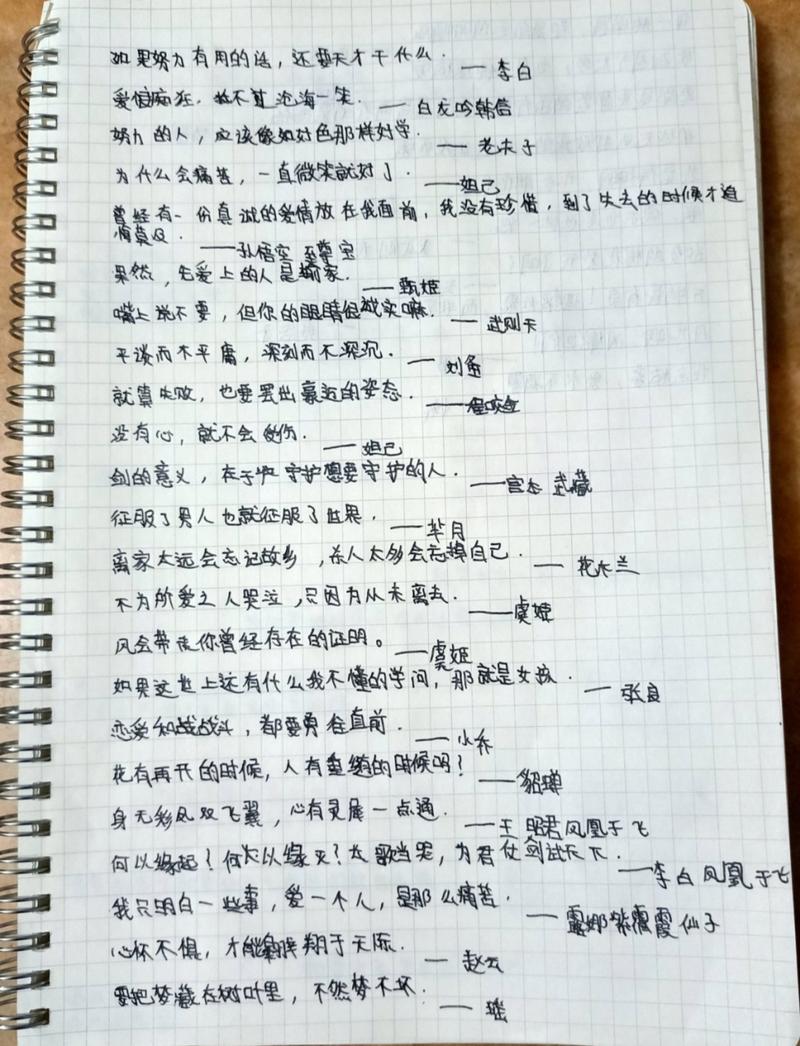 如果努力有用的话，还要天才干什么．——李白
爱恨痴狂，敌不过沧海一笑．——白龙吟韩信
努力的人，应该像好色那样好学．——老夫子
为什么会痛苦，一直微笑就好了．——妲己
曾经有一份真诚的爱情放在我面前，我没有珍惜，到了失去的时候才追
悔莫及．——孙悟空 至尊宝
果然，先爱上的人是输家．——甄姬
嘴上说不要，但你的眼睛很诚实嘛．——武则天
平淡而不平庸，深刻而不深沉．——刘备
就算失败，也要摆出豪迈的姿态．——程咬金
没有心，就不会受伤．——妲己
剑的意义，在于守护想要守护的人．——宫本 武藏
征服了男人也就征服了世界．——芈月
离家太远会忘记故乡，杀人太多会忘掉自己．——花木兰
不为所爱之人哭泣，只因为从未离去．——虞姬
风会带走你曾经存在的证明。——虞姬
如果这世上还有什么我不懂的学问，那就是女孩．——张良
恋爱和战战斗，都要勇往直前．——小乔
花有再开的时候，人有重逢的时候吗？——貂蝉
身无彩凤双飞翼，心有灵犀一点通．——王昭君凤凰于飞
何以缘起？何以缘灭？长歌当哭，为君仗剑试天下．——李白凤凰于飞
我只明白一些事，爱一个人，是那么痛苦．——露娜紫霞仙子
心怀不惧，才能翱翔于天际．——赵云
要把梦藏在树叶里，不然梦不坏．——瑶